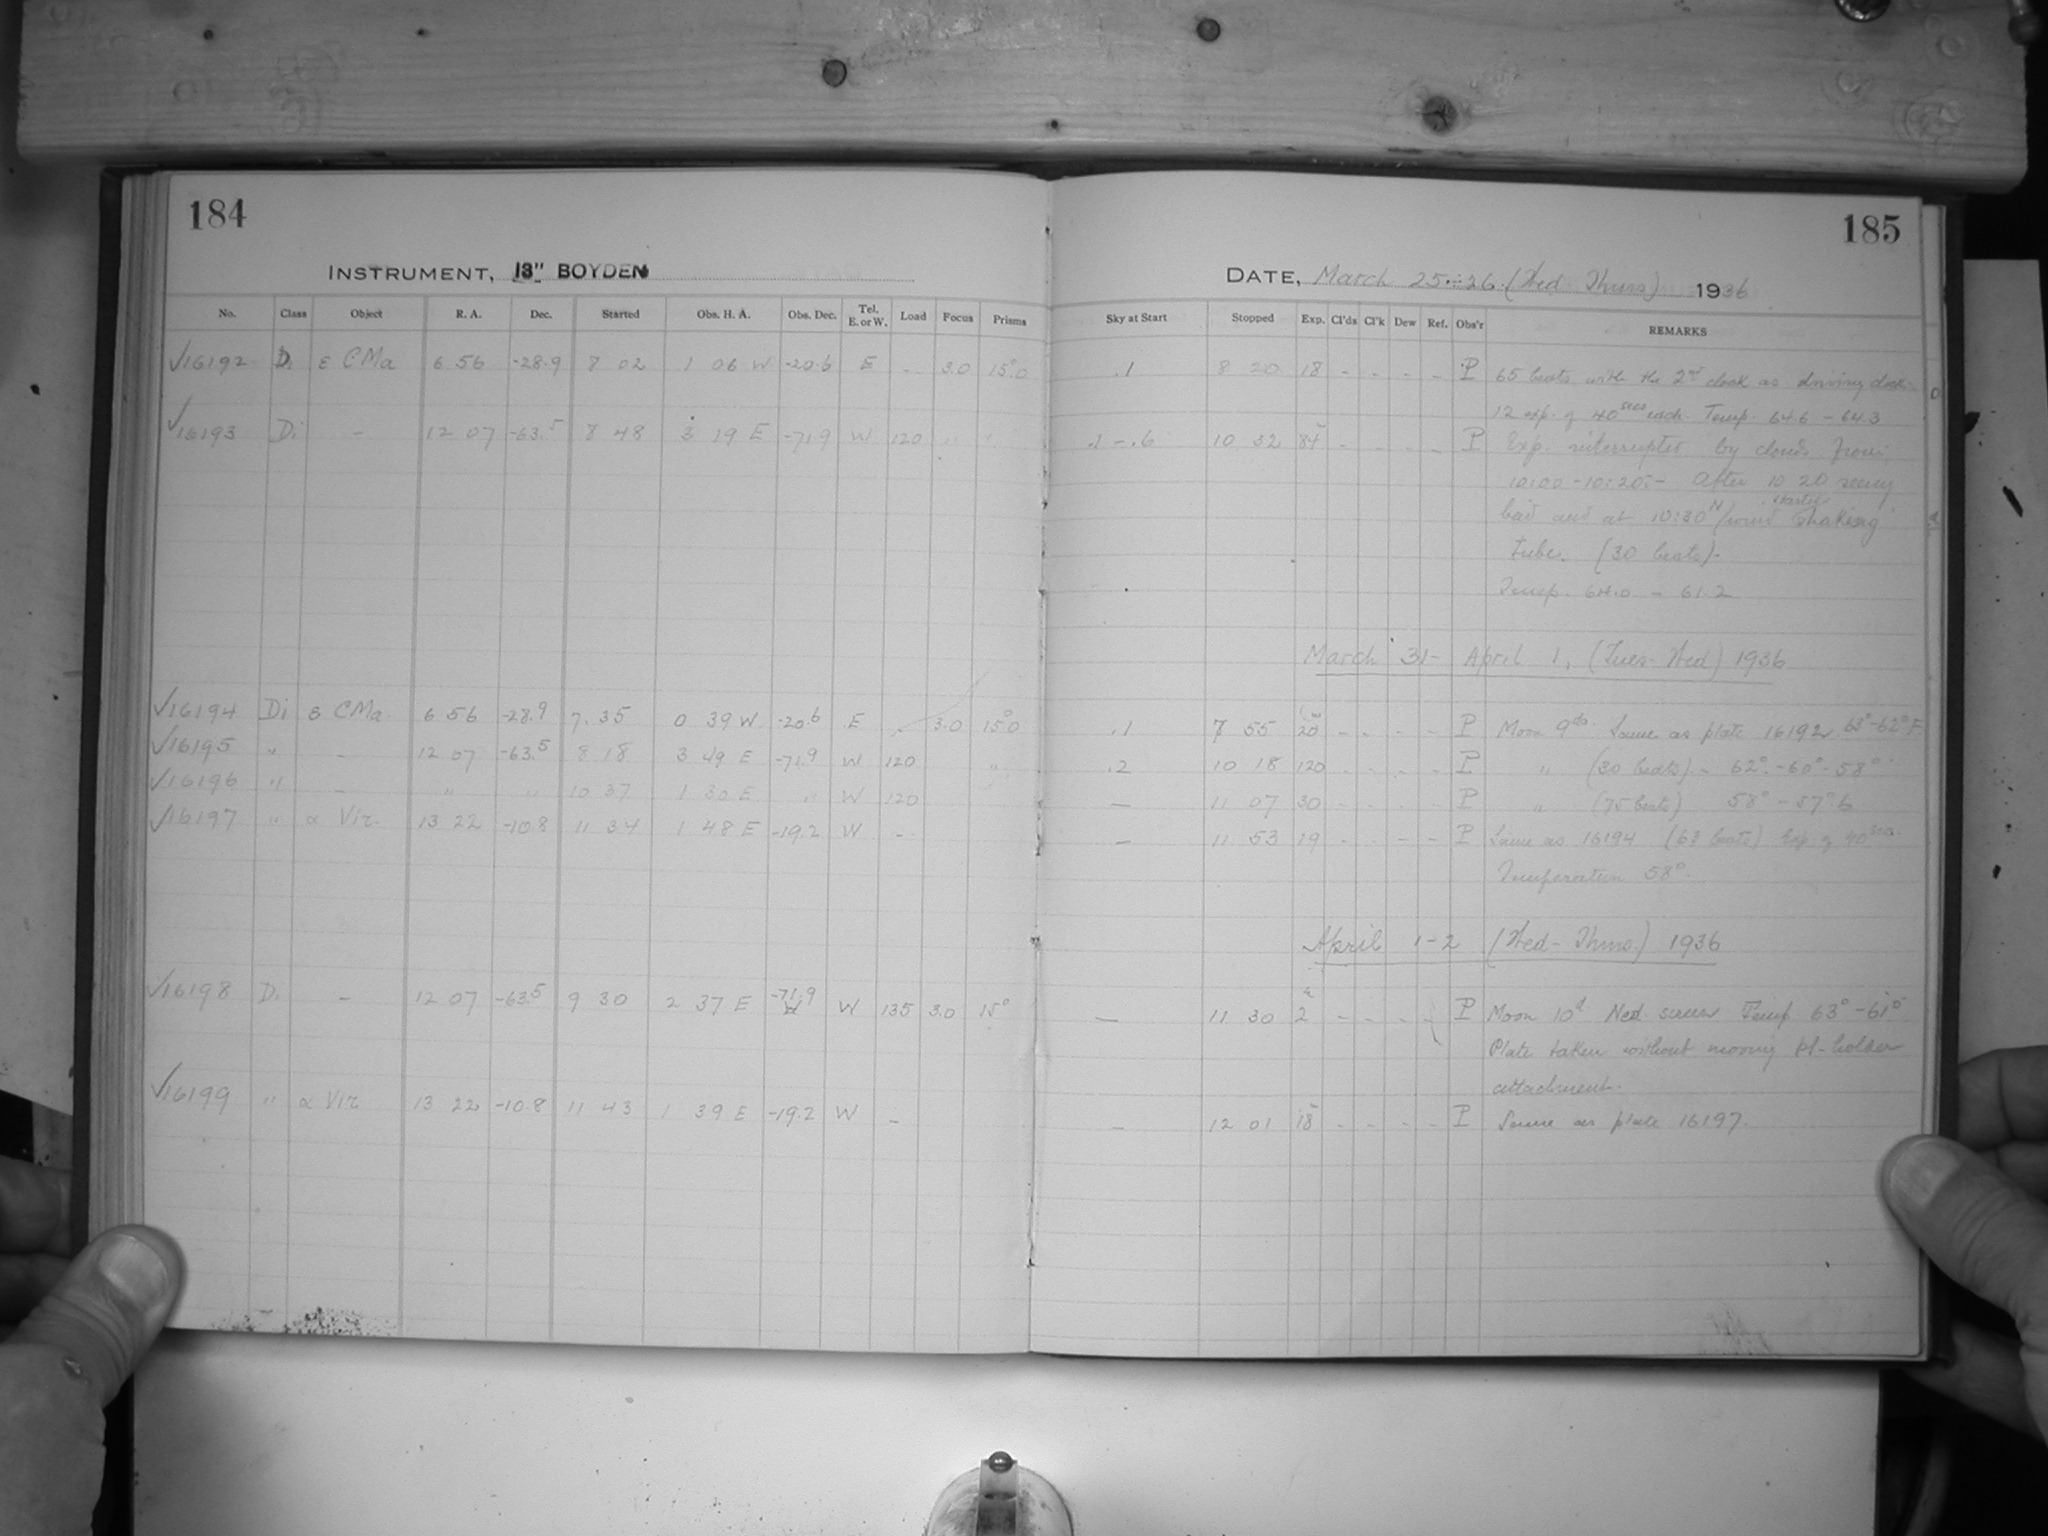 184
INSTRUMENT, 13" BOYDEN
No. Class Object R. A. Dec. Started Obs. H. A. Obs. Dec. Tel. E. or W. Load Focus Prisms
√16192 Di ε CMa 6 56 -28.9 8 02 1 06 W -20.6 E - 3.0 15°.0
√16193 Di - 12 07 -63.5 8 48 3 19 E -71.9 W 120 " "
√16194 Di ε CMa 6 56 -28.9 7.35 0 39 W -20.6 E - 3.0 15°.0
√16195 " - 12 07 -63.5 8 18 3 49 E -71.9 W 120 "
√16196 " - " " 10 37 1 30 E " W 120
√16197 " α Vir. 13 22 -10.8 11 34 1 48 E -19.2 W -
√16198 Di - 12 07 -63.5 9 30 2 37 E -71.9 W 135 3.0 15°
√16199 " α Vir 13 22 -10.8 11 43 1 39 E -19.2 W -
185
DATE, March 25-26 (Wed Thurs) 1936
Sky at Start Stopped Exp. Cl'ds Cl'k Dew Ref. Obs'r REMARKS
.1 8 20 18 - - - - P 65 beats with the 2nd clock as driving clock
12 exp. of 40 secs each. Temp. 64.6 - 64.3
.1 - .6 10 32 84 - - - - P Exp. interrupted by clouds from
10:00 - 10:20.- After 10 20 seeing
bad and at 10:30 wind started shaking
tube. (30 beats).-
Temp. 64.0 - 61.2
March 31 - April 1, (Tues-Wed) 1936
.1 7 55 20 - - - - P Moon 9 Same as plate 16192 63°-62°F.
.2 10 18 120 - - - - P " (30 beats).- 62°-60°-58°
- 11 07 30 - - - - P " (75 beats) 58° - 57°.6
- 11 53 19 - - - - P Same as 16194 (63 beats) Exp. of 40 secs.
Temperature 58°
April 1-2 (Wed-Thurs.) 1936
- 11 30 2 - - - - P Moon 10d Ned. screen Temp 63° - 61°
Plate taken without moving pl-holder
attachment.
- 12 01 18 - - - - P Same as plate 16197.